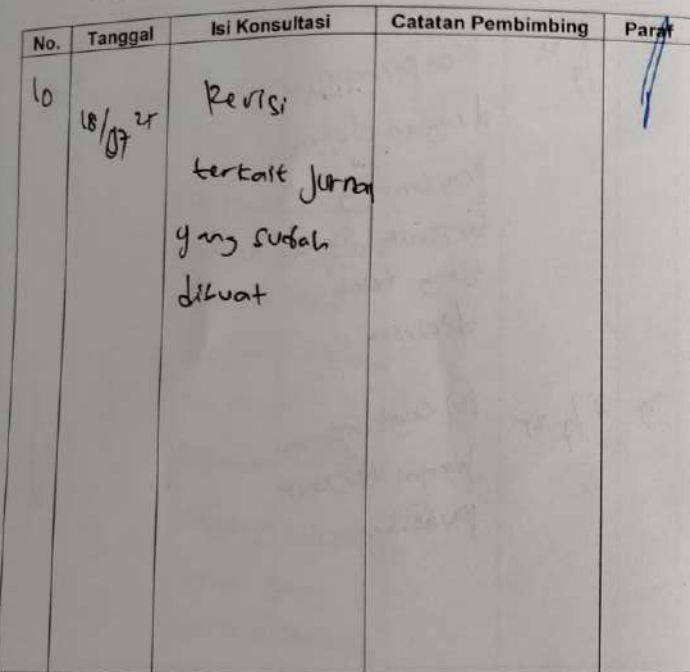 No. Tanggal Isi Konsultasi Catatan Pembimbing Paraf
10 18/07 25 Revisi
terkait Jurnal
yang sudah
dibuat